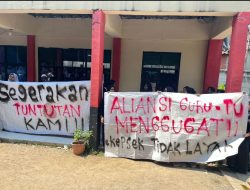 Segerakan
TUNTUTAN
KAMI!!
ALIANSI GURU-TU
MENGGUGAT!!
KEPSEK TIDAK LAYAK